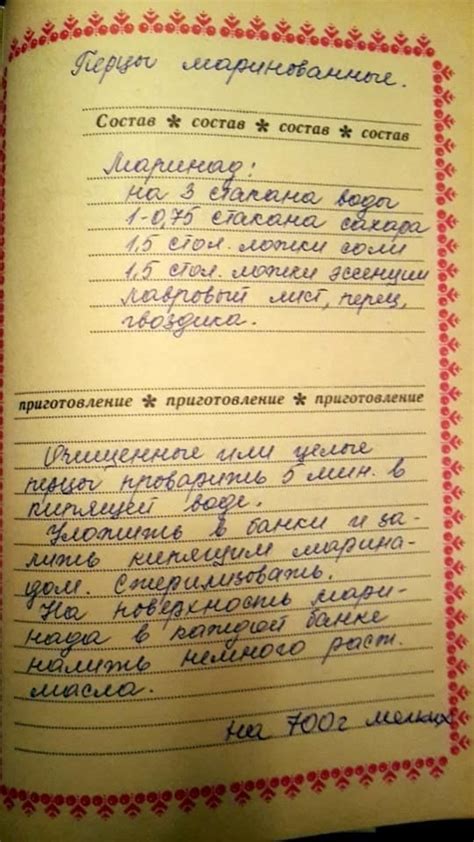 Перцы маринованные.
Состав * состав * состав * состав
Маринад:
на 3 стакана воды
1-0,75 стакана сахара
1,5 стол. ложки соли
1,5 стол. ложки эссенции
лавровый лист, перец,
гвоздика.
приготовление * приготовление * приготовление
Очищенные или целые
перцы проварить 5 мин. в
кипящей воде.
Уложить в банки и за-
лить кипящим марина-
дом. Стерилизовать.
На поверхность мари-
нада в каждой банке
налить немного раст.
масла.
на 700г мелких